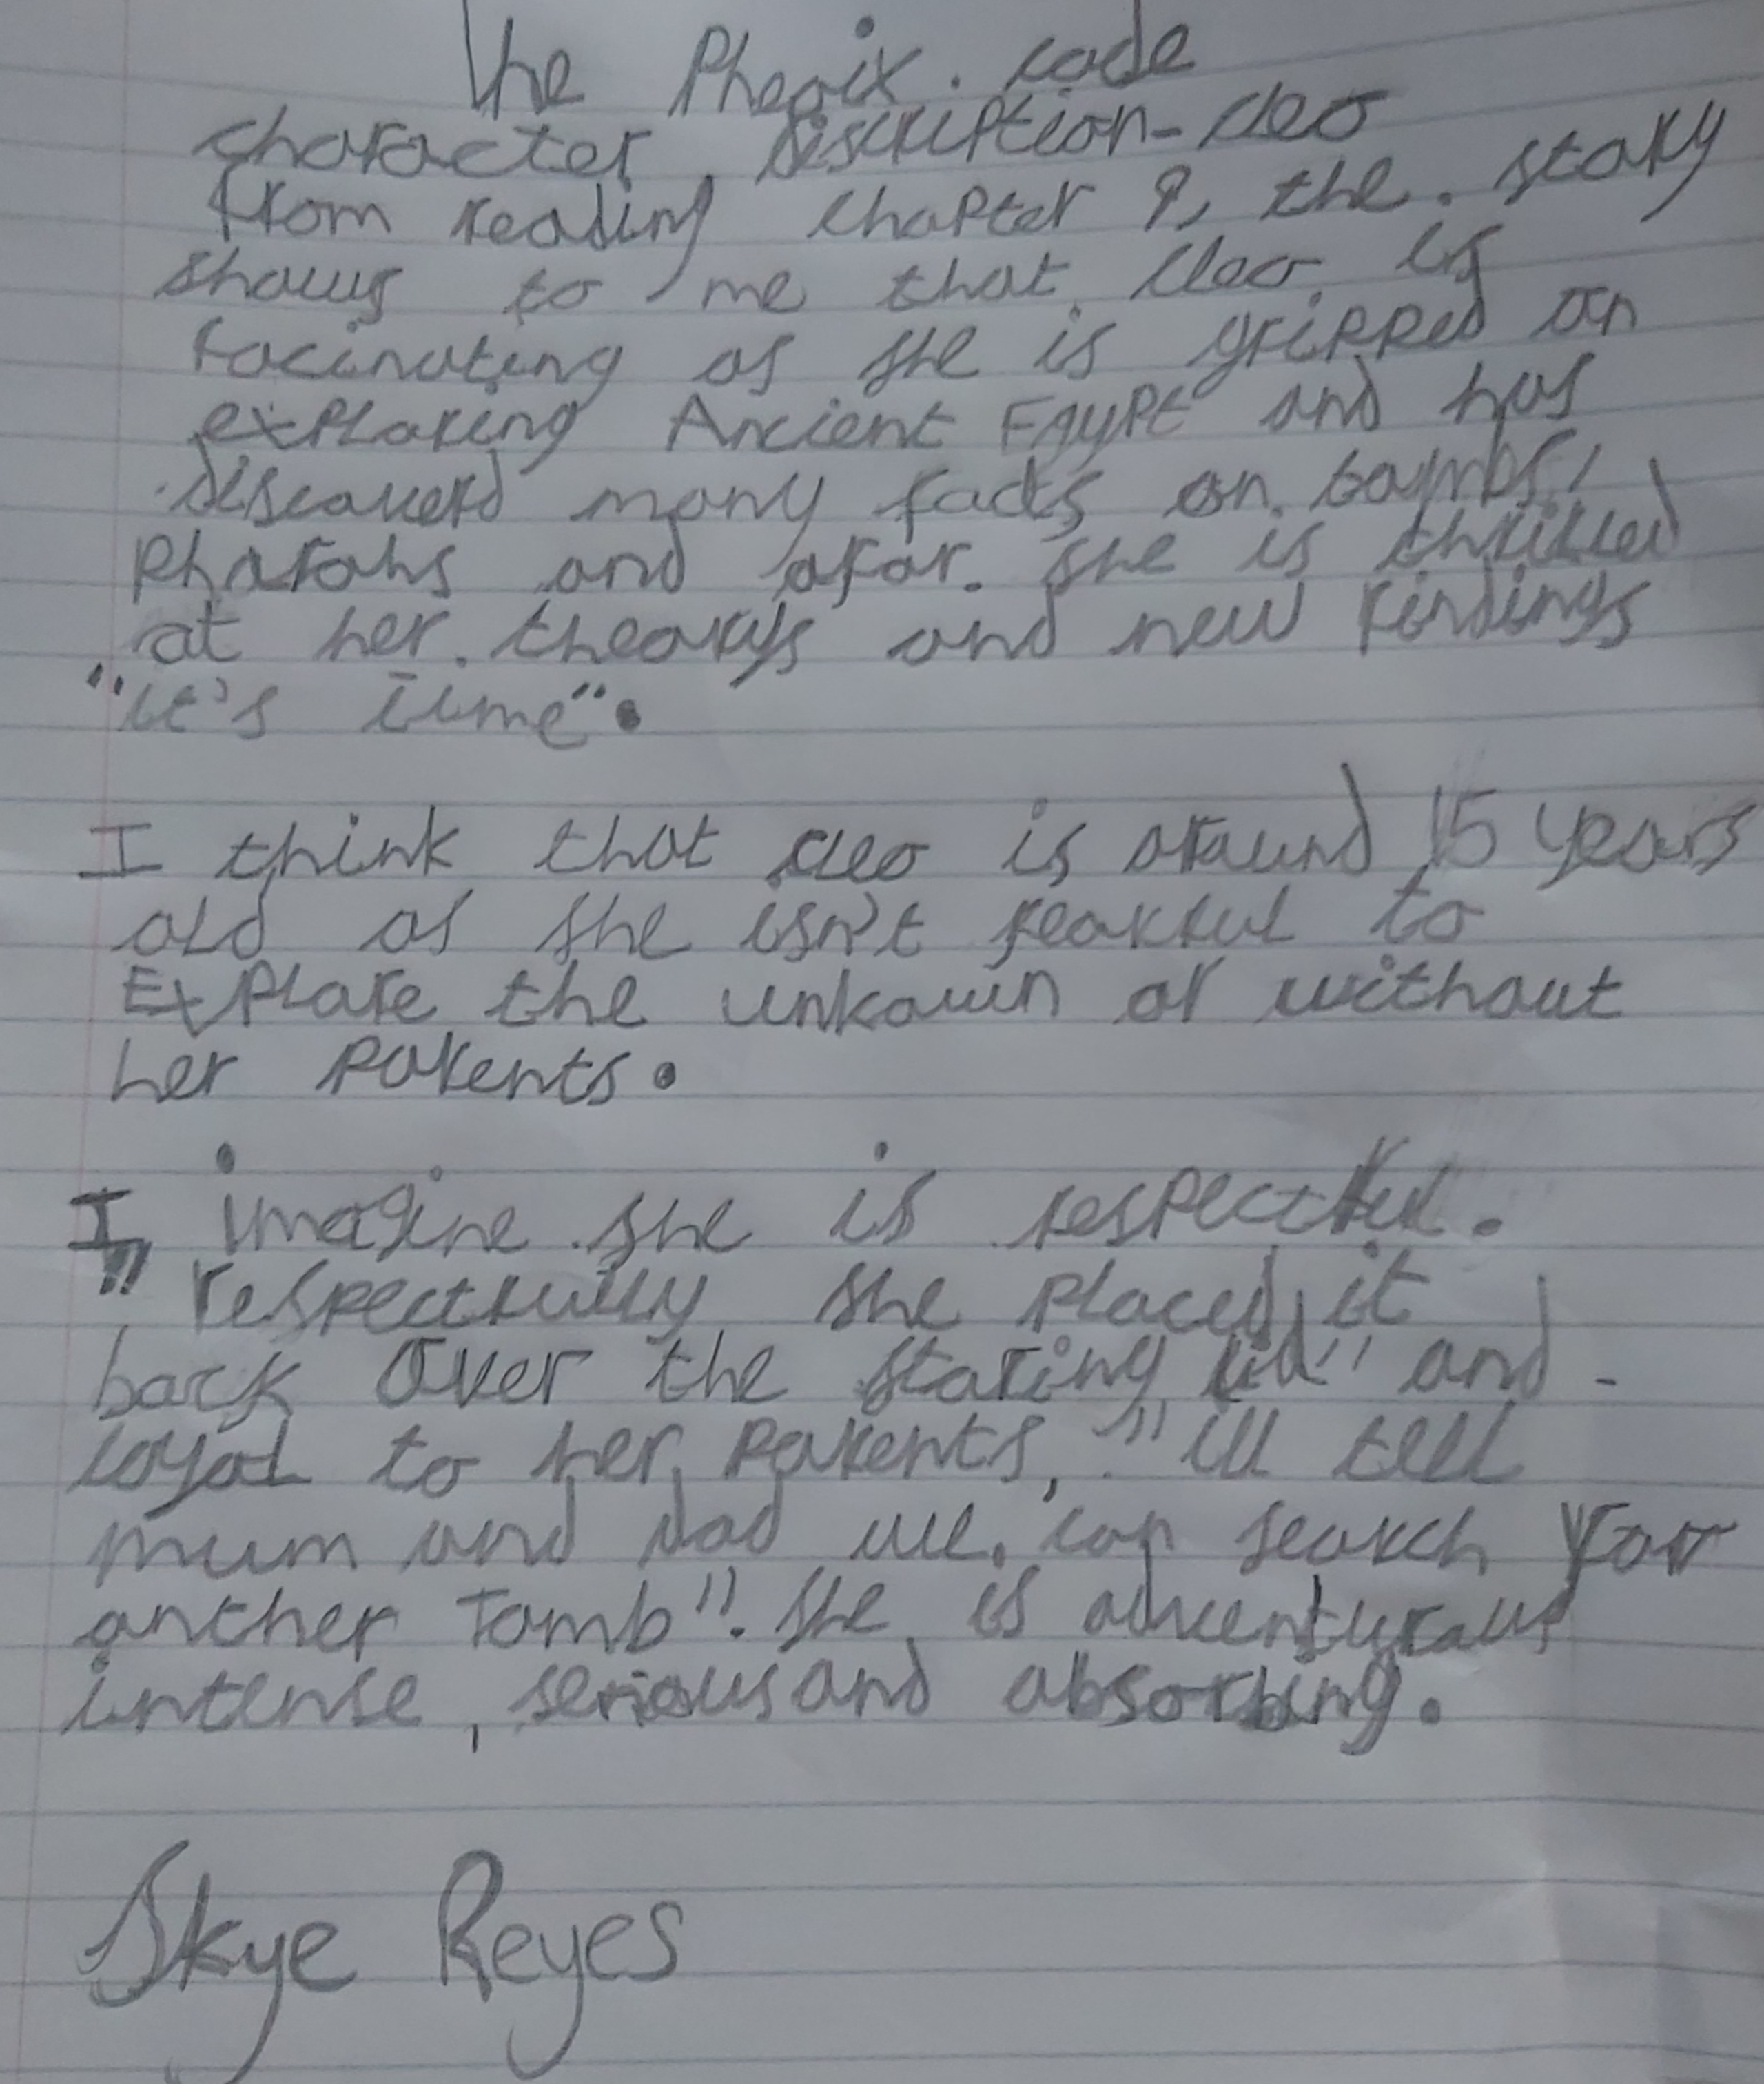 The Phenix code
character discription - cleo
from reading chapter 9, the story
shows to me that cleo is
facinating as she is gripped on
exploring Ancient Egypt and has
discoverd many facts on tombs,
pharohs and afar. she is thrilled
at her theorys and new findings
"it's time".
I think that cleo is around 15 years
old as she isn't fearful to
Explore the unkown or without
her parents.
I imagine she is respectful.
"respectfully she placed it
back over the staring lid" and
loyal to her parents, "ill tell
mum and dad we can search for
anther Tomb". she is adventurous
intense, serious and absorbing.
Skye Reyes